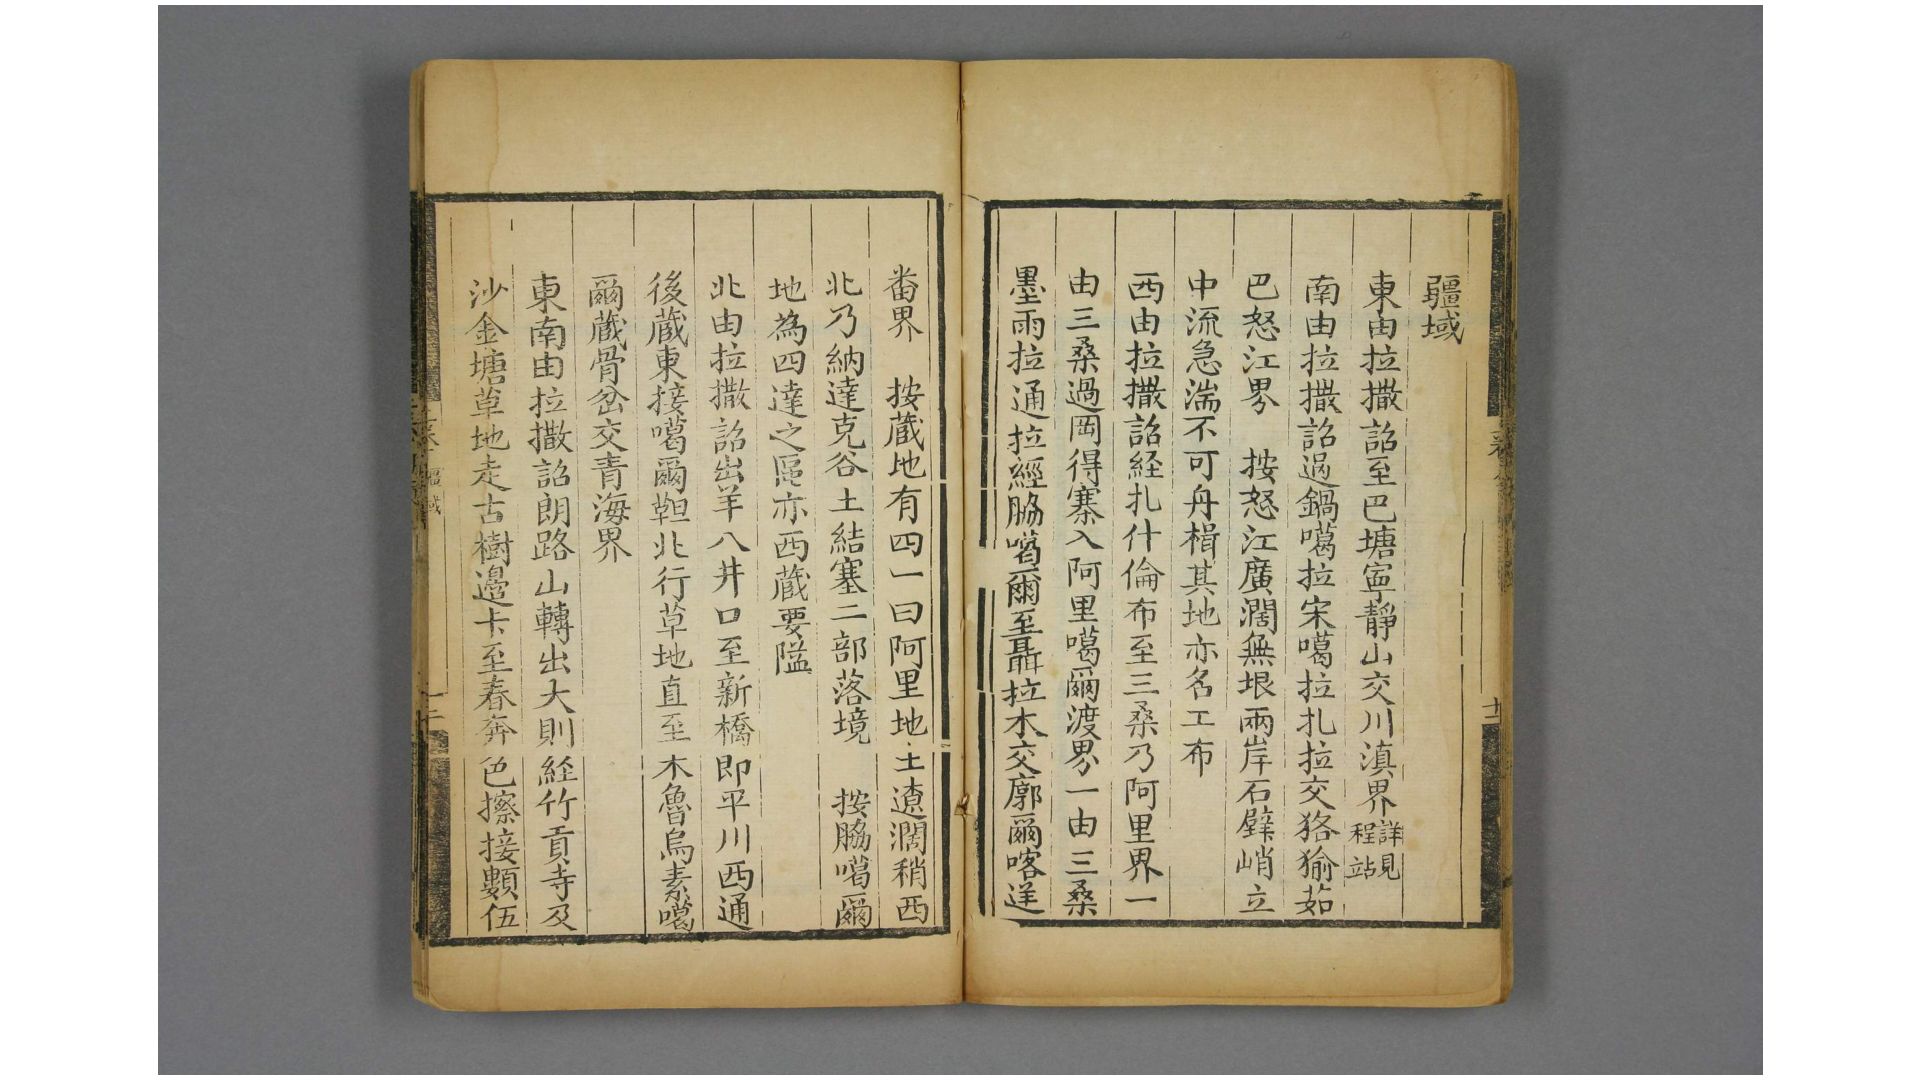 疆域
東由拉撒詔至巴塘寧靜山交川滇界詳見程站
南由拉撒詔過鍋噶拉宋噶拉扎拉交狢㺄茹
巴怒江界 按怒江廣濶無垠兩岸石壁峭立
中流急湍不可舟楫其地亦名工布
西由拉撒詔経扎什倫布至三桑乃阿里界一
由三桑過岡得寨入阿里噶爾渡界一由三桑
墨雨拉通拉經脇噶爾至聶拉木交廓爾喀逆
十一
番界 按蔵地有四一曰阿里地土遼濶稍西
北乃納達克谷土結塞二部落境 按脇噶爾
地為四達之區亦西蔵要隘
北由拉撒詔出羊八井口至新橋即平川西通
後蔵東接噶爾靼北行草地直至木魯烏素噶
爾蔵骨岔交青海界
東南由拉撒詔朗路山轉出大則経竹貢寺及
沙金塘草地走古樹邊卡至春奔色擦接數伍
疆域
十二